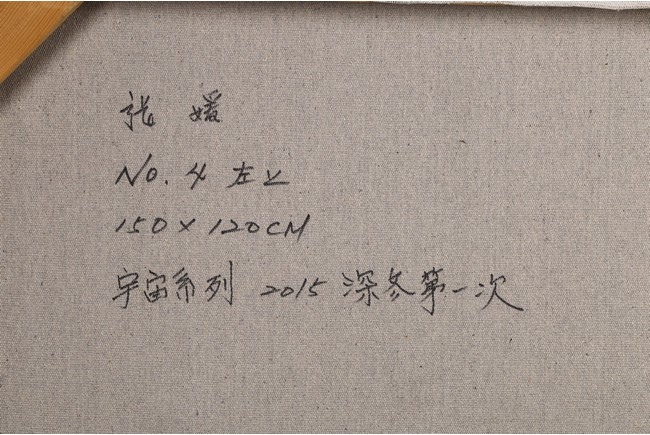 张 媛
No. 4 左上
150×120CM
宇宙系列 2015 深冬第一次